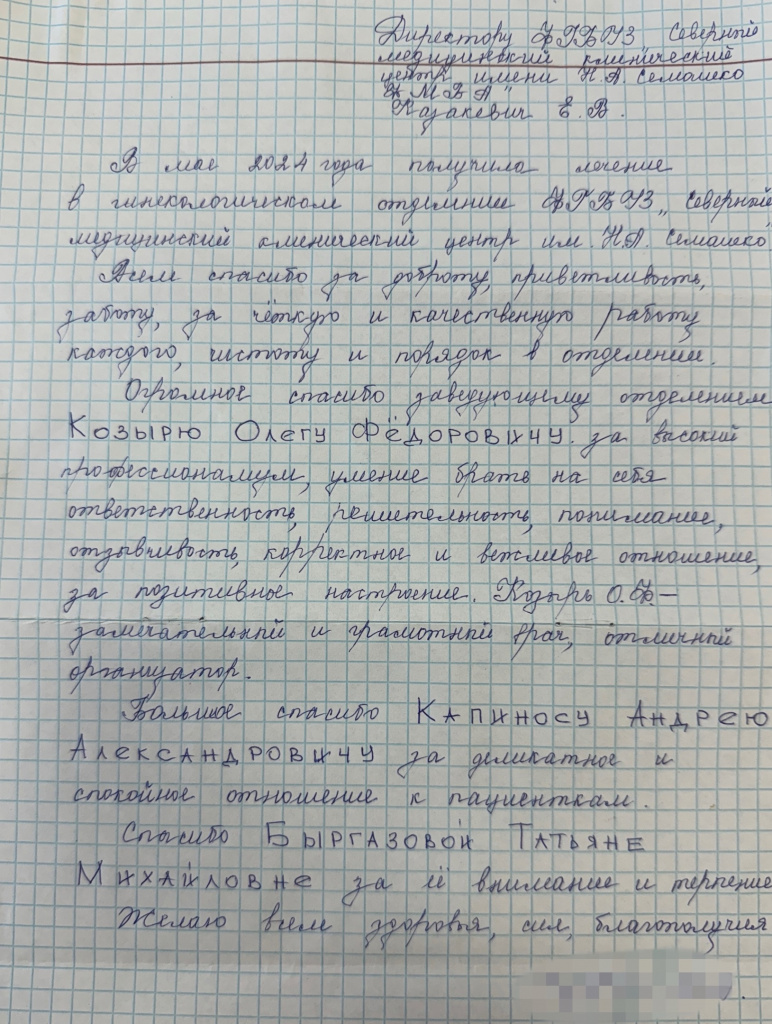 Директору ФГБУЗ Северный
медицинский клинический
центр имени Н.А. Семашко
ФМБА"
Казакевич Е.В.
В мае 2024 года получила лечение
в гинекологическом отделении ФГБУЗ „Северный
медицинский клинический центр им. Н.А. Семашко"
Всем спасибо за доброту, приветливость,
заботу, за чёткую и качественную работу
каждого, чистоту и порядок в отделении.
Огромное спасибо заведующему отделением
Козырю Олегу Фёдоровичу. за высокий
профессионализм, умение брать на себя
ответственность, решительность, понимание,
отзывчивость, корректное и вежливое отношение,
за позитивное настроение. Козырь О.Ф. –
замечательный и грамотный врач, отличный
организатор.
Большое спасибо Капиносу Андрею
Александровичу за деликатное и
спокойное отношение к пациенткам.
Спасибо Быргазовой Татьяне
Михайловне за её внимание и терпение
Желаю всем здоровья, сил, благополучия